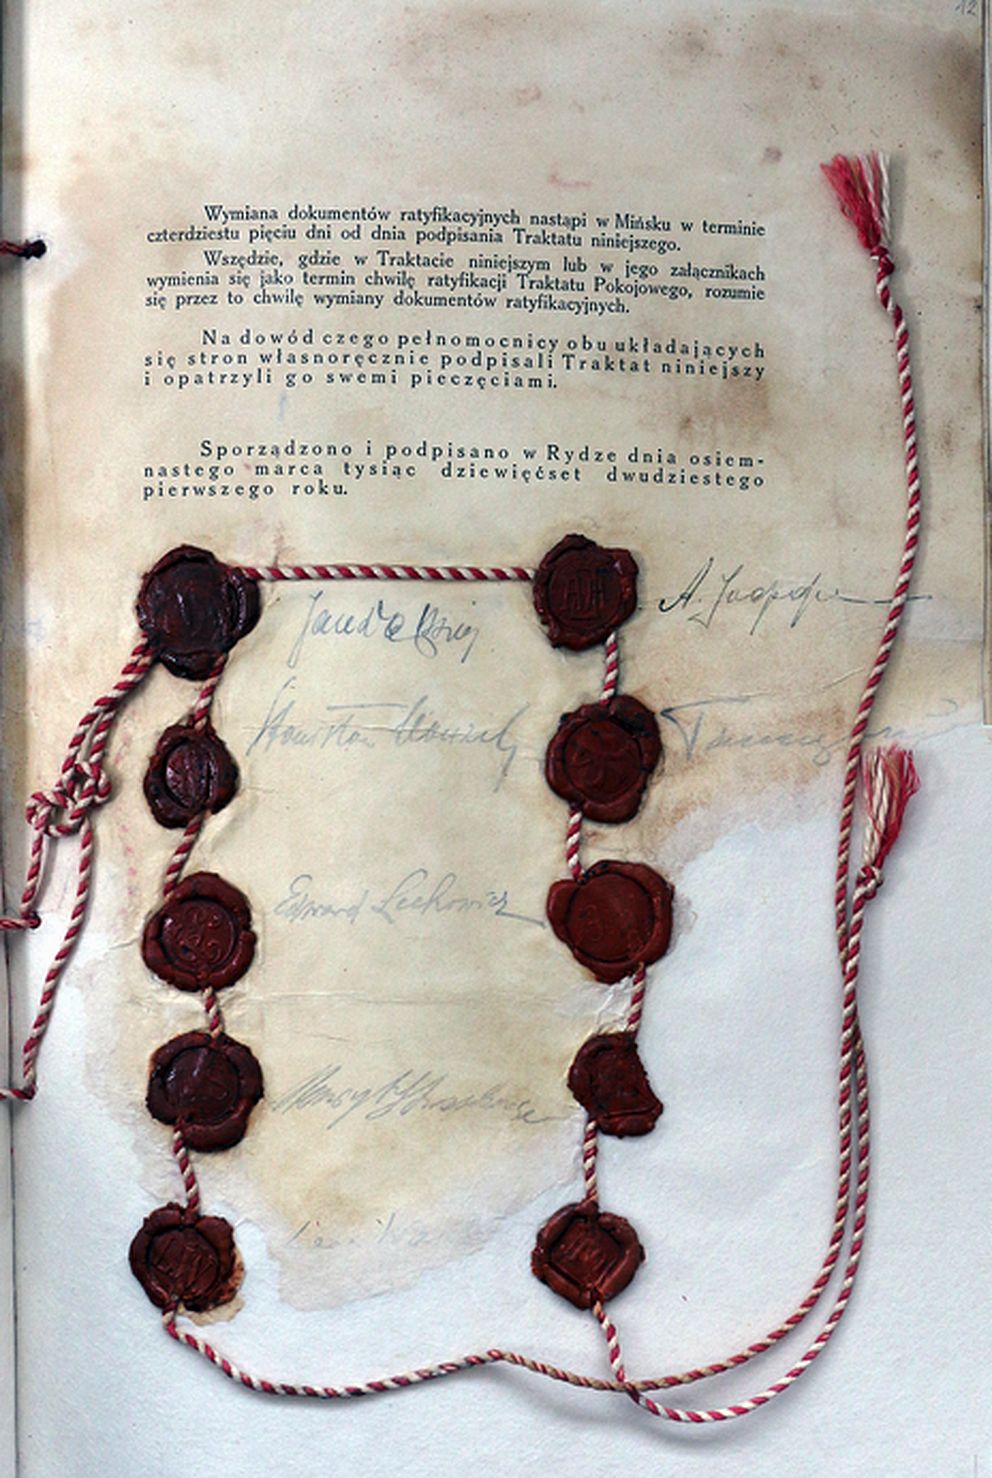 12
Wymiana dokumentów ratyfikacyjnych nastąpi w Mińsku w terminie
czterdziestu pięciu dni od dnia podpisania Traktatu niniejszego.
Wszędzie, gdzie w Traktacie niniejszym lub w jego załącznikach
wymienia się jako termin chwilę ratyfikacji Traktatu Pokojowego, rozumie
się przez to chwilę wymiany dokumentów ratyfikacyjnych.
Na dowód czego pełnomocnicy obu układających
się stron własnoręcznie podpisali Traktat niniejszy
i opatrzyli go swemi pieczęciami.
Sporządzono i podpisano w Rydze dnia osiem-
nastego marca tysiąc dziewięćset dwudziestego
pierwszego roku.
A.
Edward Lechowicz